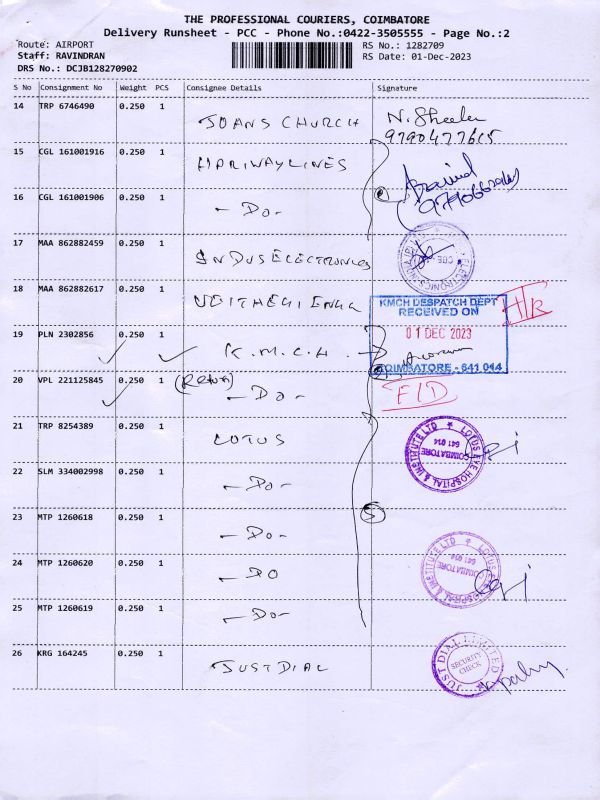 THE PROFESSIONAL COURIERS, COIMBATORE
Delivery Runsheet - PCC - Phone No.:0422-3505555 - Page No.:2
Route: AIRPORT RS No.: 1282709
Staff: RAVINDRAN RS Date: 01-Dec-2023
DRS No.: DCJB128270902
S No Consignment No Weight PCS Consignee Details Signature
14 TRP 6746490 0.250 1 JOANS CHURCH N. Sheela
9790477615
15 CGL 161001916 0.250 1 HARIWAYLINES
16 CGL 161001906 0.250 1 - Do -
17 MAA 862882459 0.250 1 INDUS ELECTRONICS
18 MAA 862882617 0.250 1
KMCH DESPATCH DEPT
RECEIVED ON
01 DEC 2023
COIMBATORE - 641 014
19 PLN 2302856 0.250 1 K.M.C.H
20 VPL 221125845 0.250 1 - Do -
21 TRP 8254389 0.250 1 LOTUS
LOTUS EYE HOSPITAL & INSTITUTE LTD
COIMBATORE
641 014
22 SLM 334002998 0.250 1 - Do -
5
23 MTP 1260618 0.250 1 - Do -
24 MTP 1260620 0.250 1 - DO
LOTUS EYE HOSPITAL & INSTITUTE LTD
COIMBATORE
641 014
25 MTP 1260619 0.250 1 - Do -
26 KRG 164245 0.250 1 JUST DIAL
JUST DIAL LIMITED
SECURITY
CHECK